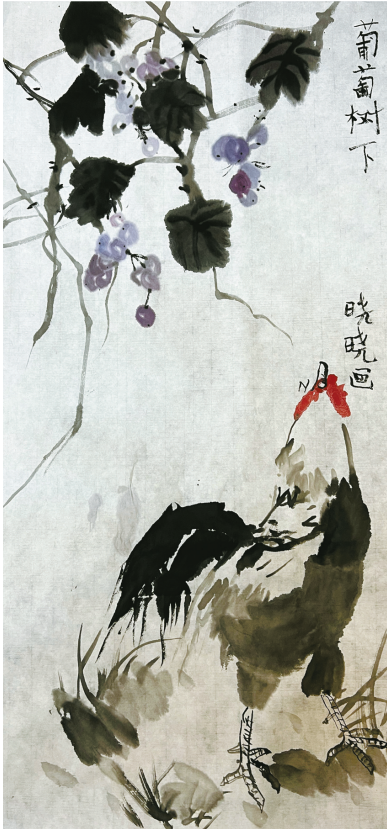 葡萄树下
晓晓画